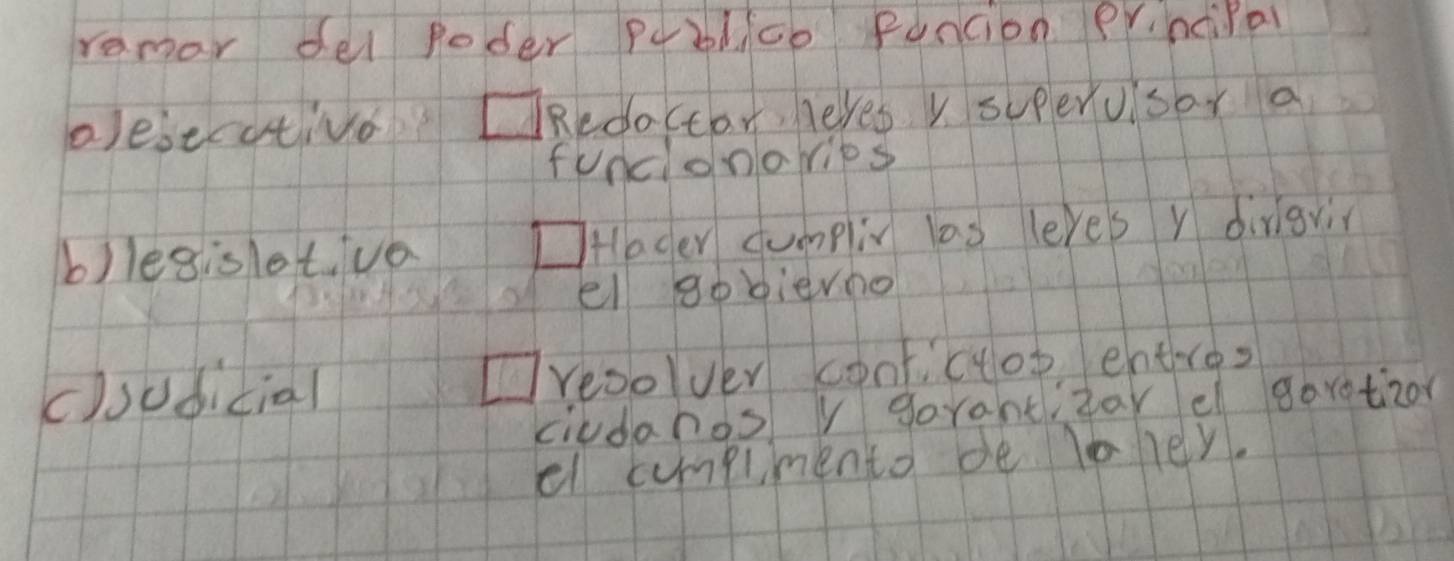 ramar del poder publico funcion principal
a) ejecutivo □ Redactar leyes y supervisar a
funcionarios
b) legislativa □ Hacer cumplir las leyes y dirigrir
el gobierno
c) judicial □ resolver conflictos entres
ciudanos y garantizar el garatizar
el cumplimento de la ley.